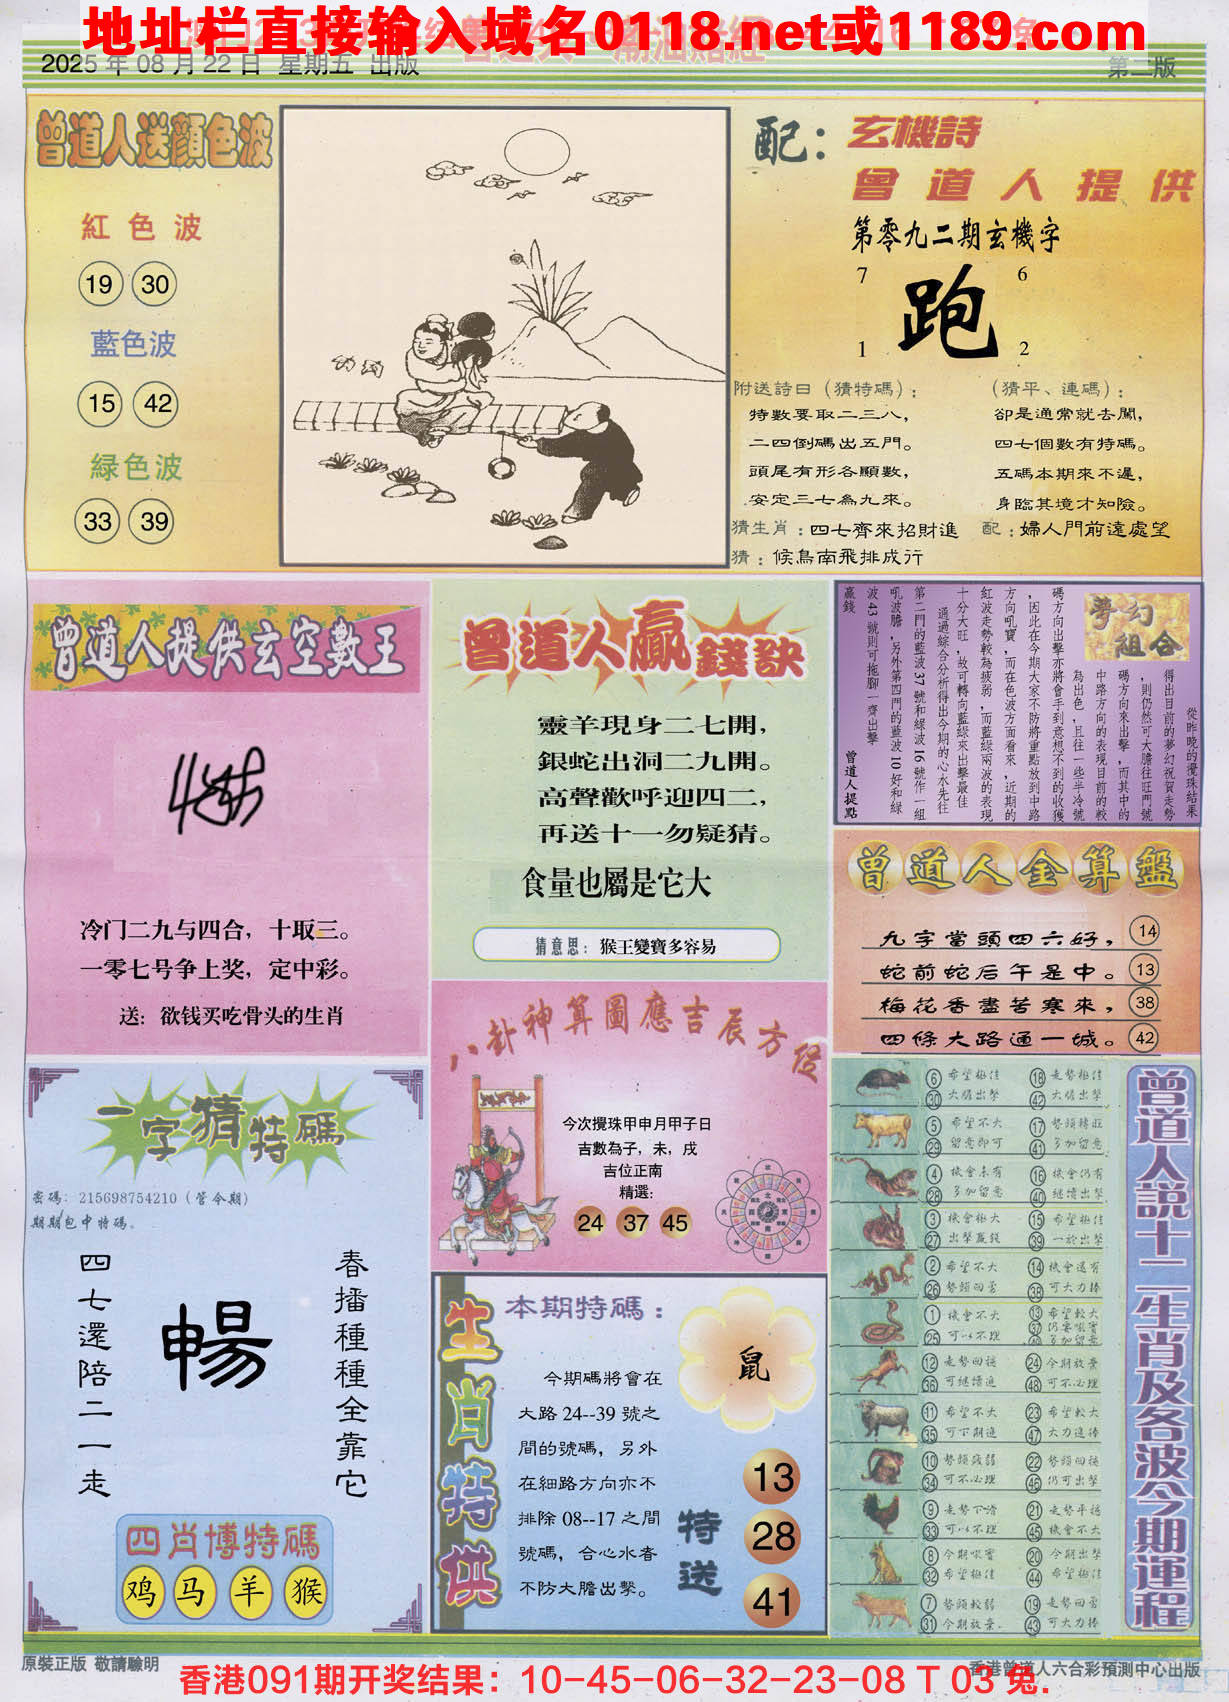 地址栏直接输入域名0118.net或1189.com
2025 年 08 月 22 日 星期五 出版
第二版
曾道人送顏色波
紅色波
19 30
藍色波
15 42
綠色波
33 39
配：玄機詩
曾道人提供
第零九二期玄機字
7 6
跑
1 2
附送詩曰（猜特碼）：
特數要取二三八，
二四倒碼出五門。
頭尾有形各顯數，
安定三七為九來。
（猜平、連碼）：
卻是通常就去闖，
四七個數有特碼。
五碼本期來不遲，
身臨其境才知險。
猜生肖：四七齊來招財進
配：婦人門前遠處望
猜：候鳥南飛排成行
曾道人提供玄空數王
冷门二九与四合，十取三。
一零七号争上奖，定中彩。
送：欲钱买吃骨头的生肖
曾道人贏錢訣
靈羊現身二七開，
銀蛇出洞二九開。
高聲歡呼迎四二，
再送十一勿疑猜。
食量也屬是它大
猜意思：猴王變寶多容易
夢幻組合
從昨晚的攪珠結果
得出目前的夢幻祝賀走勢
，則仍然可大膽往旺門號
碼方向來出擊，而其中的
中路方向的表現目前的較
為出色，且往一些半冷號
碼方向出擊亦將會手到意想不到的收獲
，因此在今期大家不防將重點放到中路
方向吼寶，而在色波方面看來，近期的
紅波走勢較為疲弱，而藍綠兩波的表現
十分大旺，故可轉向藍綠來出擊最佳
通過綜合分析得出今期的心水先往
第二門的藍波 37 號和綠波 16 號作一組
吼波膽，另外第四門的藍波 10 好和綠
波 43 號則可拖腳一齊出擊
贏錢
曾道人提點
曾道人金算盤
九字當頭四六好， 14
蛇前蛇后午是中。 13
梅花香盡苦寒來， 38
四條大路通一城。 42
八卦神算圖應吉辰方位
今次攪珠甲申月甲子日
吉數為子，未，戌
吉位正南
精選：
24 37 45
一字猜特碼
密碼：215698754210（管今期）
期期包中特碼。
春播種種全靠它
暢
四七還陪二一走
四肖博特碼
鸡 马 羊 猴
生肖特供
本期特碼：
鼠
今期碼將會在
大路 24--39 號之
間的號碼，另外
在細路方向亦不
排除 08--17 之間
號碼，合心水者
不防大膽出擊。
特送
13
28
41
曾道人說十二生肖及各波今期運程
6 希望極佳 18 走勢極佳
30 大膽出擊 42 大膽出擊
5 希望不大 17 勢頭轉旺
29 留意即可 41 多加留意
4 機會未有 16 機會仍有
28 多加留意 40 繼續出擊
3 機會極大 15 希望極佳
27 出擊贏錢 39 一於出擊
2 希望不大 14 機會還有
26 勢頭回苦 38 可大力捧
1 機會不大 13 希望較大
25 可以不理
12 走勢回穩 24 今期放棄
36 可繼續追 48 可不必理
11 希望不大 23 希望較大
35 可下期追 47 大力追捧
10 勢頭疲弱 22 勢頭回穩
34 可不必理 46 仍可出擊
9 走勢下滑 21 走勢平穩
33 可以不理 45 機會不大
8 今期吼實 20 今期出擊
32 希望極佳 44 希望極佳
7 勢頭較弱 19 走勢回苦
31 今期放棄. 43 可大力捧
原裝正版 敬請驗明
香港091期开奖结果：10-45-06-32-23-08 T 03 兔.
香港曾道人六合彩預測中心出版